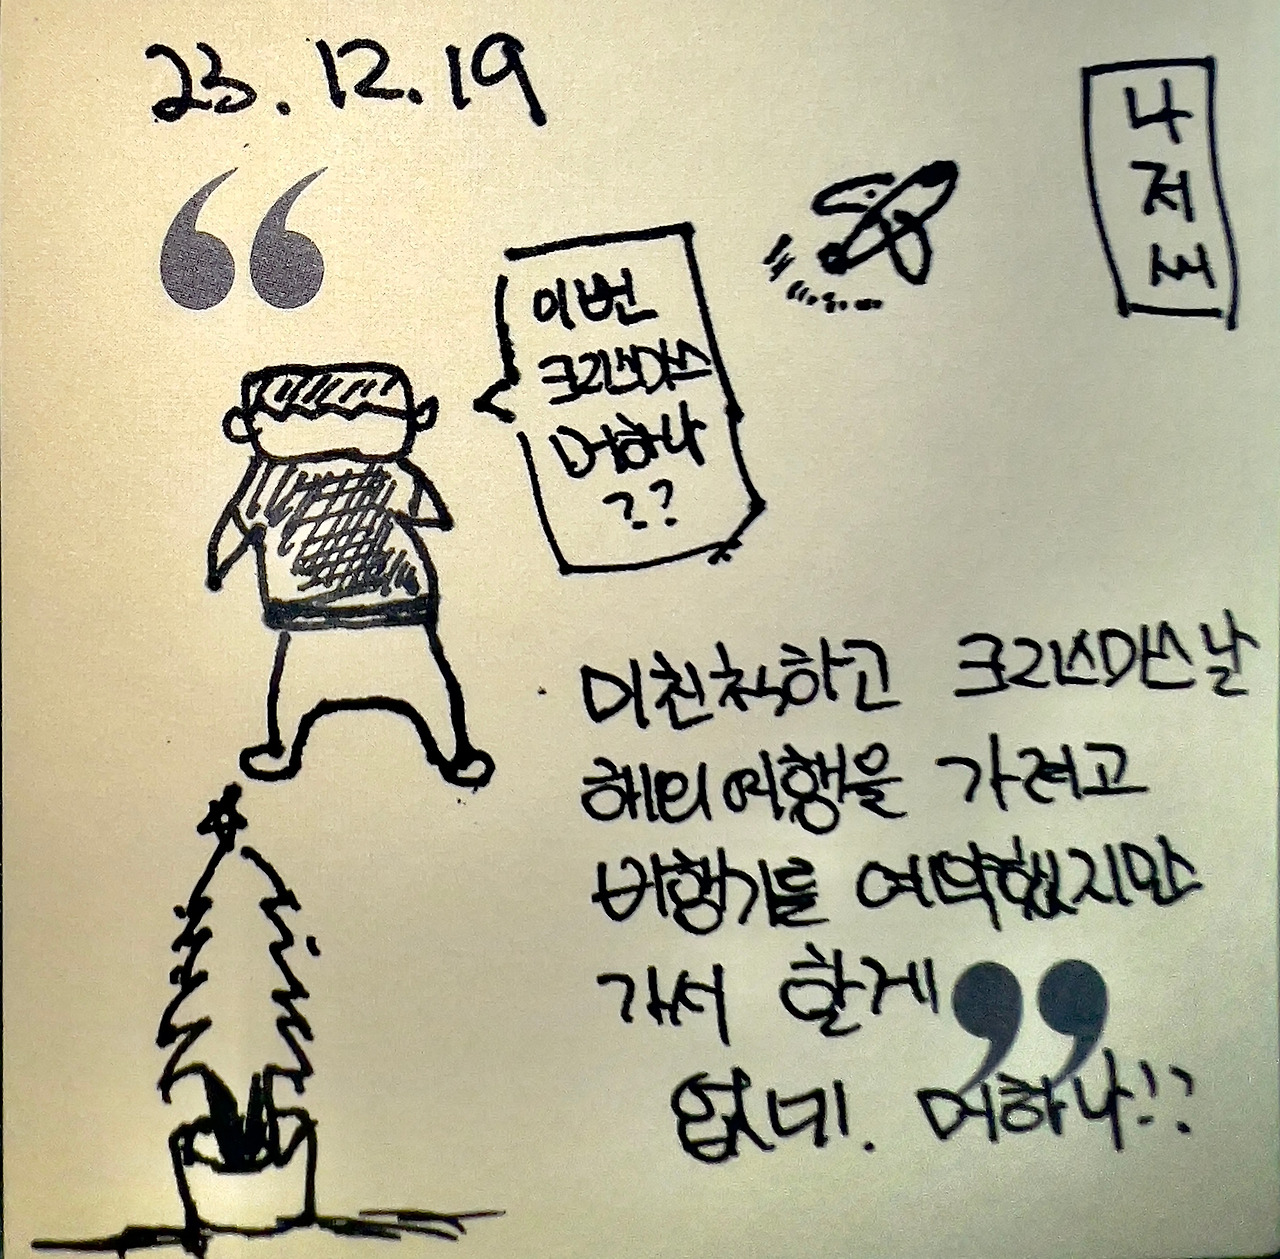 23.12.19
나
저
씨
이번
크리스마스
머하나
??
미친척하고 크리스마스날
해외여행을 가려고
비행기를 예약했지만
가서 할게
없네!. 머하나!?